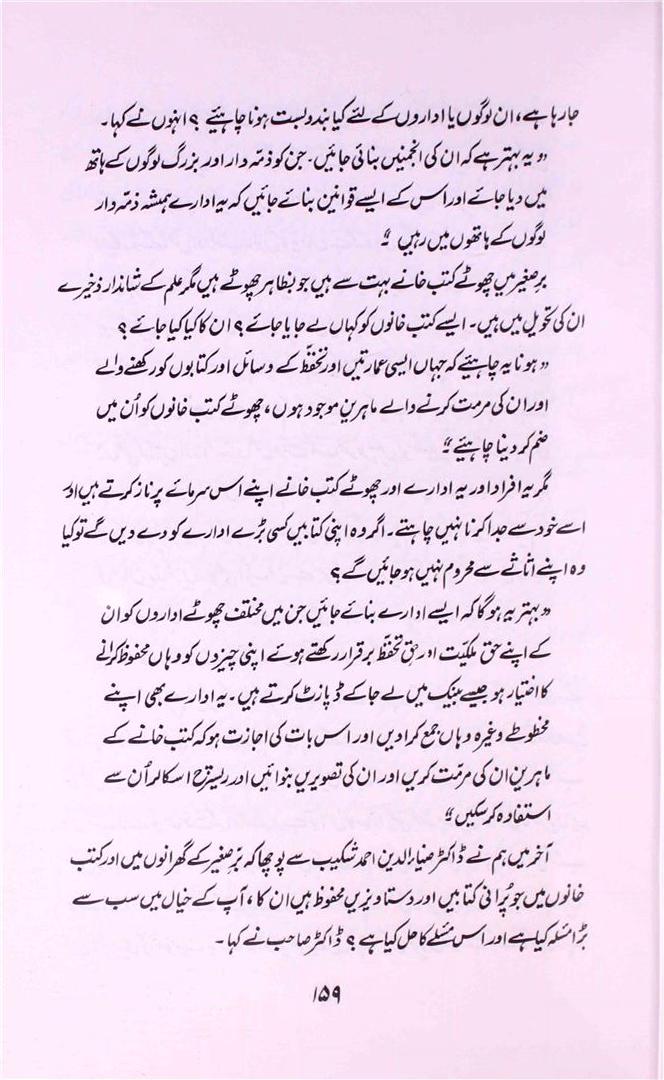 جا رہا ہے، ان لوگوں یا اداروں کے لئے کیا بندوبست ہونا چاہئیے ؟ انہوں نے کہا۔
”یہ بہتر ہے کہ ان کی انجمنیں بنائی جائیں۔ جن کو ذمّہ دار اور بزرگ لوگوں کے ہاتھ
میں دیا جائے اور اس کے ایسے قوانین بنائے جائیں کہ یہ ادارے ہمیشہ ذمّہ دار
لوگوں کے ہاتھوں میں رہیں“
برّصغیر میں چھوٹے کتب خانے بہت سے ہیں جو بظاہر چھوٹے ہیں مگر علم کے شاندار ذخیرے
ان کی تحویل میں ہیں۔ ایسے کتب خانوں کو کہاں لے جایا جائے ؟ ان کا کیا کیا جائے ؟
”ہونا یہ چاہئیے کہ جہاں ایسی عمارتیں اور تحفّظ کے وسائل اور کتابوں کو رکھنے والے
اور ان کی مرمت کرنے والے ماہرین موجود ہوں، چھوٹے کتب خانوں کو اُن میں
ضم کر دینا چاہئیے“
مگر یہ افراد اور یہ ادارے اور چھوٹے کتب خانے اپنے اس سرمائے پر ناز کرتے ہیں اور
اسے خود سے جدا کرنا نہیں چاہتے۔ اگر وہ اپنی کتابیں کسی بڑے ادارے کو دے دیں گے تو کیا
وہ اپنے اثاثے سے محروم نہیں ہو جائیں گے ؟
”بہتر یہ ہوگا کہ ایسے ادارے بنائے جائیں جن میں مختلف چھوٹے اداروں کو ان
کے اپنے حق ملکیّت اور حقِ تحفّظ برقرار رکھتے ہوئے اپنی چیزوں کو وہاں محفوظ کرانے
کا اختیار ہو جیسے بینک میں لے جا کے ڈپازٹ کرتے ہیں۔ یہ ادارے بھی اپنے
مخطوطے وغیرہ وہاں جمع کرا دیں اور اس بات کی اجازت ہو کہ کتب خانے کے
ماہرین ان کی مرمّت کریں اور ان کی تصویریں بنوائیں اور ریسرچ اسکالر اُن سے
استفادہ کر سکیں“
آخر میں ہم نے ڈاکٹر ضیاء الدین احمد شکیب سے پوچھا کہ برّصغیر کے گھرانوں میں اور کتب
خانوں میں جو پُرانی کتابیں اور دستاویزیں محفوظ ہیں ان کا، آپ کے خیال میں سب سے
بڑا مسئلہ کیا ہے اور اس مسئلے کا حل کیا ہے ؟ ڈاکٹر صاحب نے کہا۔
۱۵۹